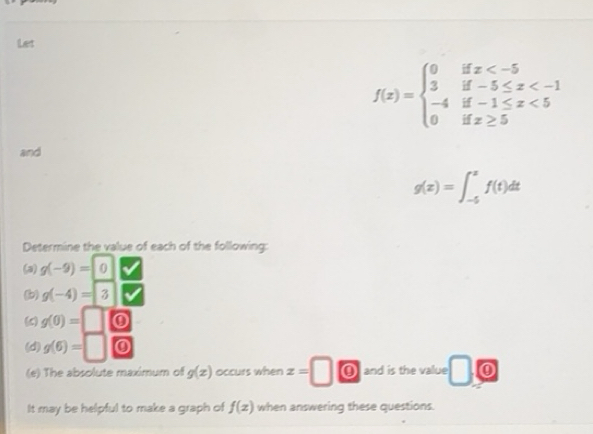 Let
f(x) = { 0 if x < -5
3 if -5 ≤ x < -1
-4 if -1 ≤ x < 5
0 if x ≥ 5
and
g(x) = ∫_{-5}^{x} f(t)dt
Determine the value of each of the following:
(a) g(-9) = 0
(b) g(-4) = 3
(c) g(0) =
(d) g(6) =
(e) The absolute maximum of g(x) occurs when x = and is the value
It may be helpful to make a graph of f(x) when answering these questions.